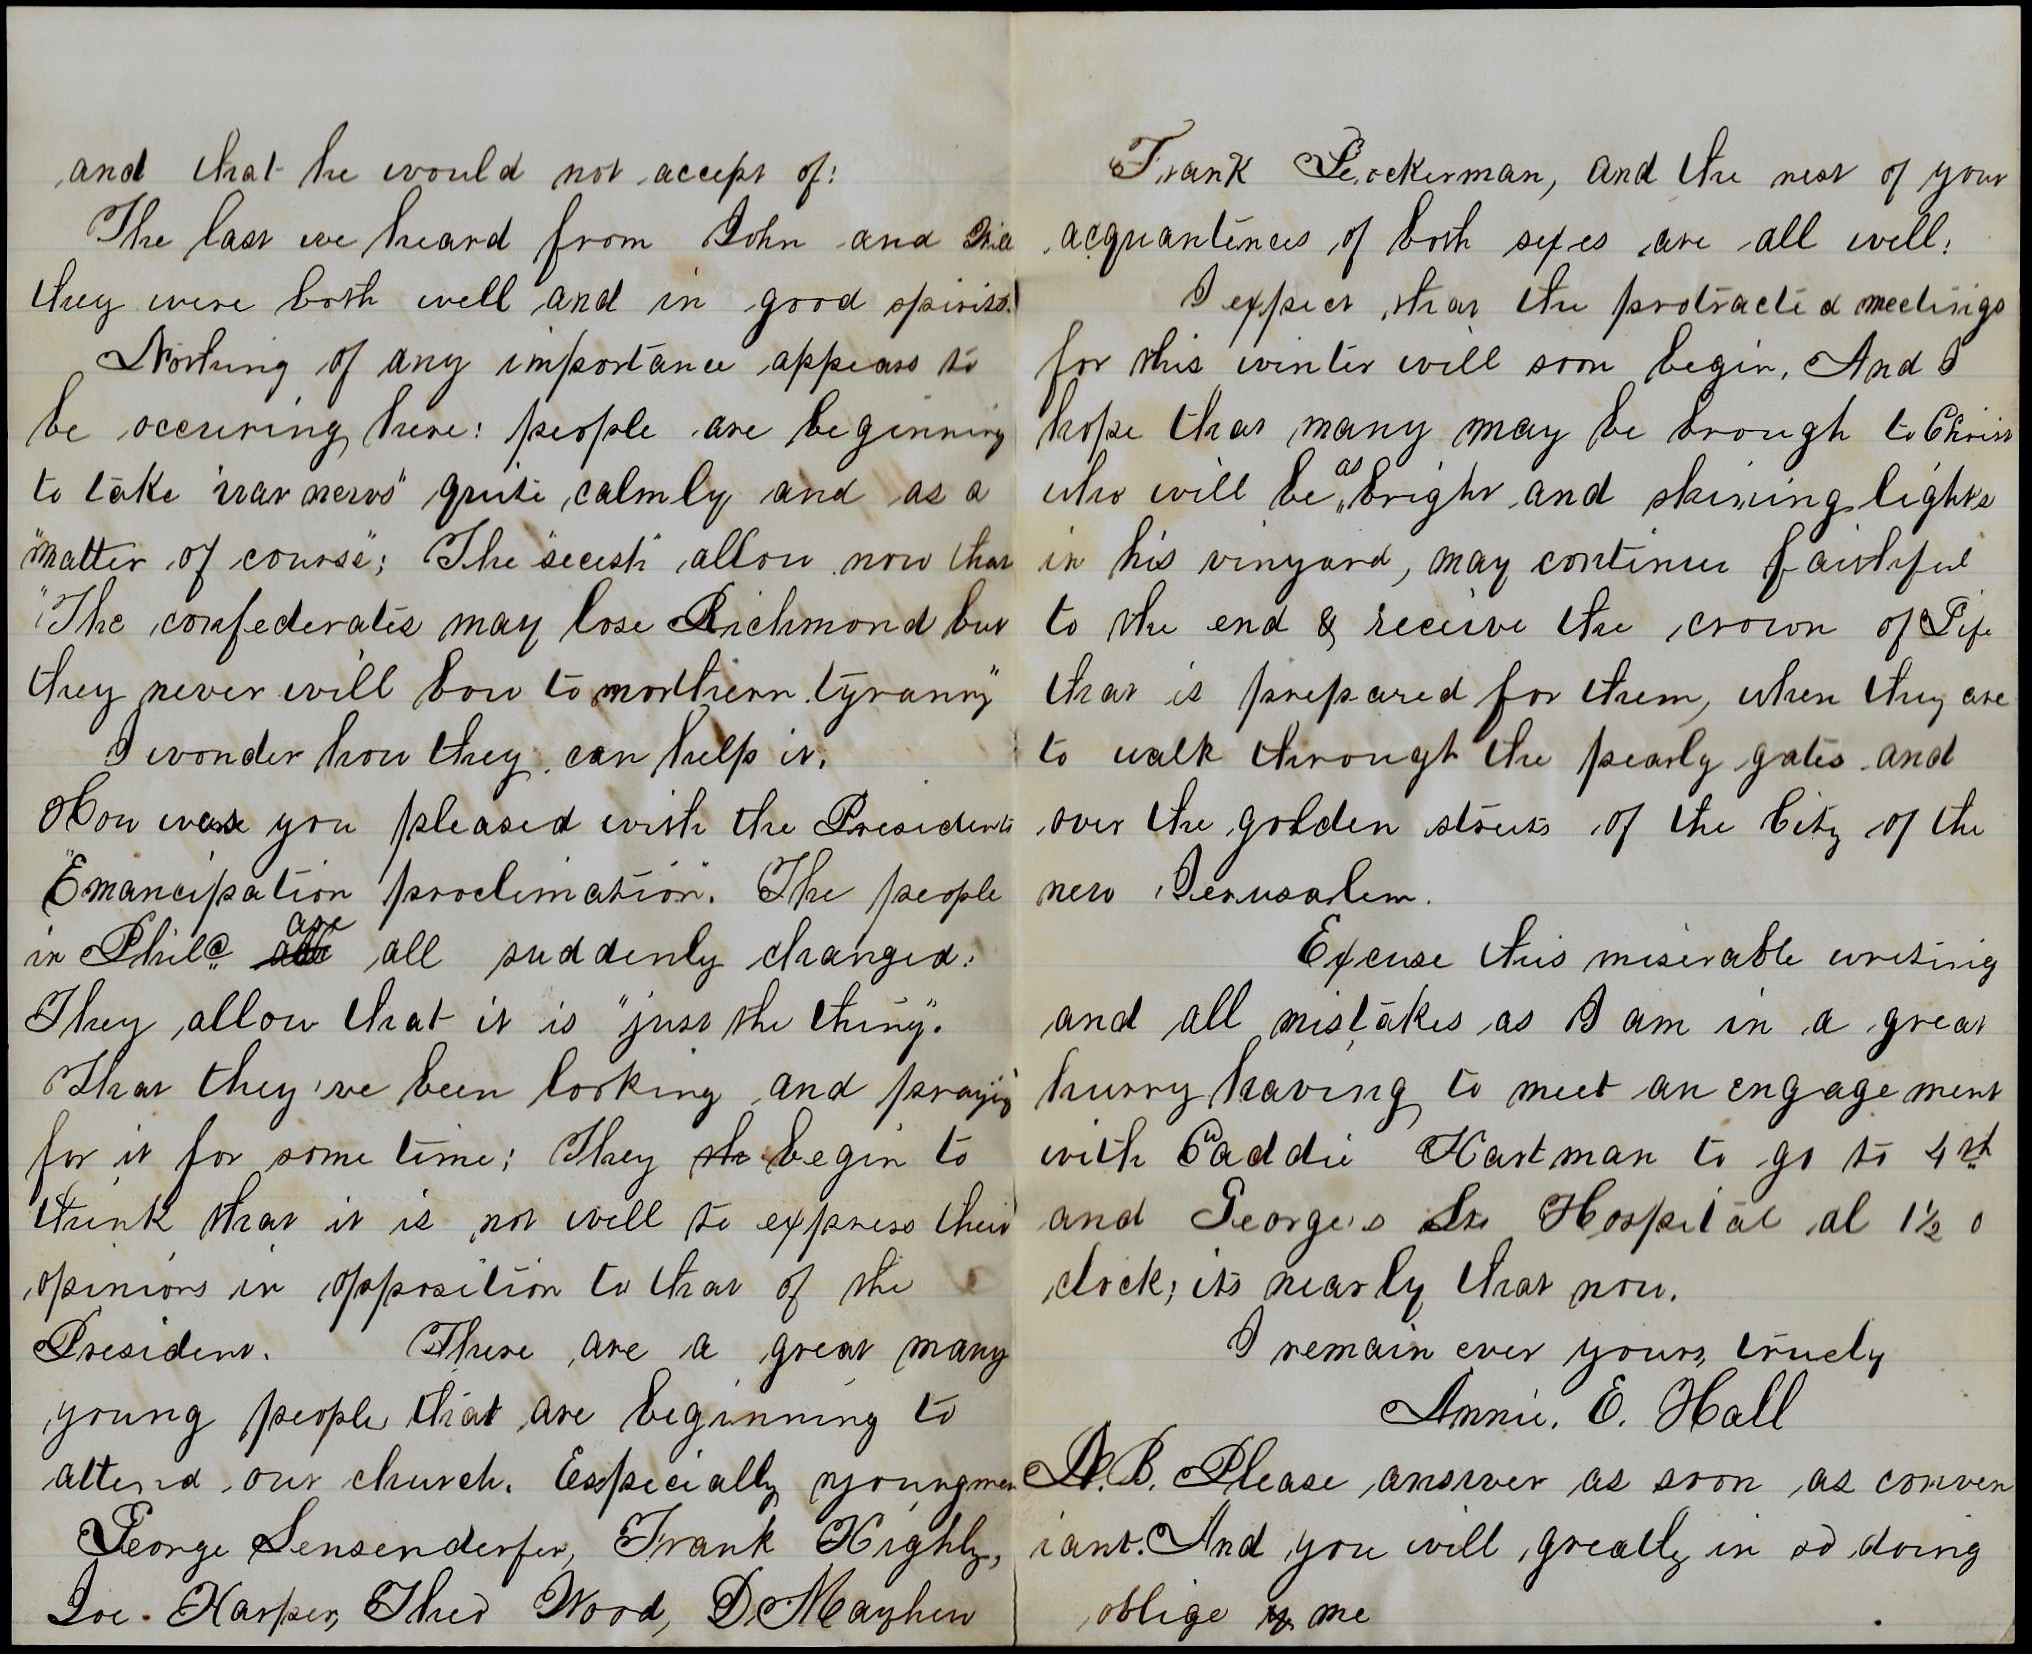 and that he would not accept of:
The last we heard from John and
they were both well and in good spirits.
Nothing of any importance appears to
be occuring here: people are beginning
to take "war news" quite calmly and as a
"matter of course"; The "secesh" allow now that
"The confederates may lose Richmond but
they never will bow to northern tyranny"
I wonder how they can help it.
How were you pleased with the Presidents
"Emancipation proclimation". The people
in Phila are all suddenly changed:
They allow that it is "just the thing".
That they've been looking and praying
for it for some time; They begin to
think that it is not well to express their
opinions in opposition to that of the
President. There are a great many
young people that are beginning to
attend our church. Especially youngmen
George Sensenderfer, Frank Highly,
Joe. Harper, Theo Wood, D. Mayhew
Frank, and the rest of your
acquantences of both sexes are all well:
I expect that the protracted meetings
for this winter will soon begin. And I
hope that many may be brough to Christ
who will be as bright and shining lights
in his vinyard, may continue faithful
to the end & receive the crown of Life
that is prepared for them, when they are
to walk through the pearly gates and
over the golden streets of the City of the
new Jerusalem.
Excuse this miserable writing
and all mistakes as I am in a great
hurry having to meet an engagement
with Caddie Hartman to go to 4th
and George's Sts Hospital at 1½ o
clock; its nearly that now.
I remain ever yours, truely
Annie. E. Hall
N.B. Please answer as soon as conven
iant. And you will greatly in so doing
oblige me